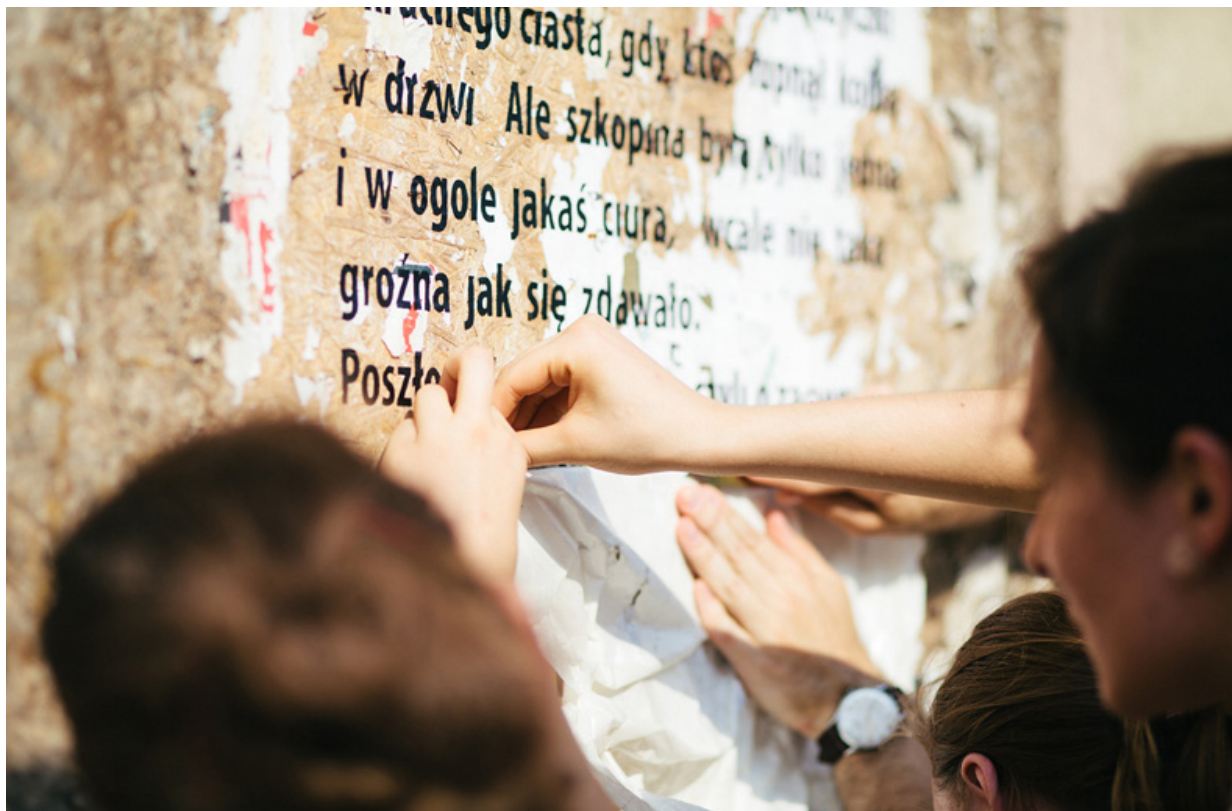 ciasta, gdy ktoś łupnął kolbą
w drzwi Ale szkopina była tylko jedna
i w ogole jakaś ciura, wcale nie taka
groźna jak się zdawało.
Poszło